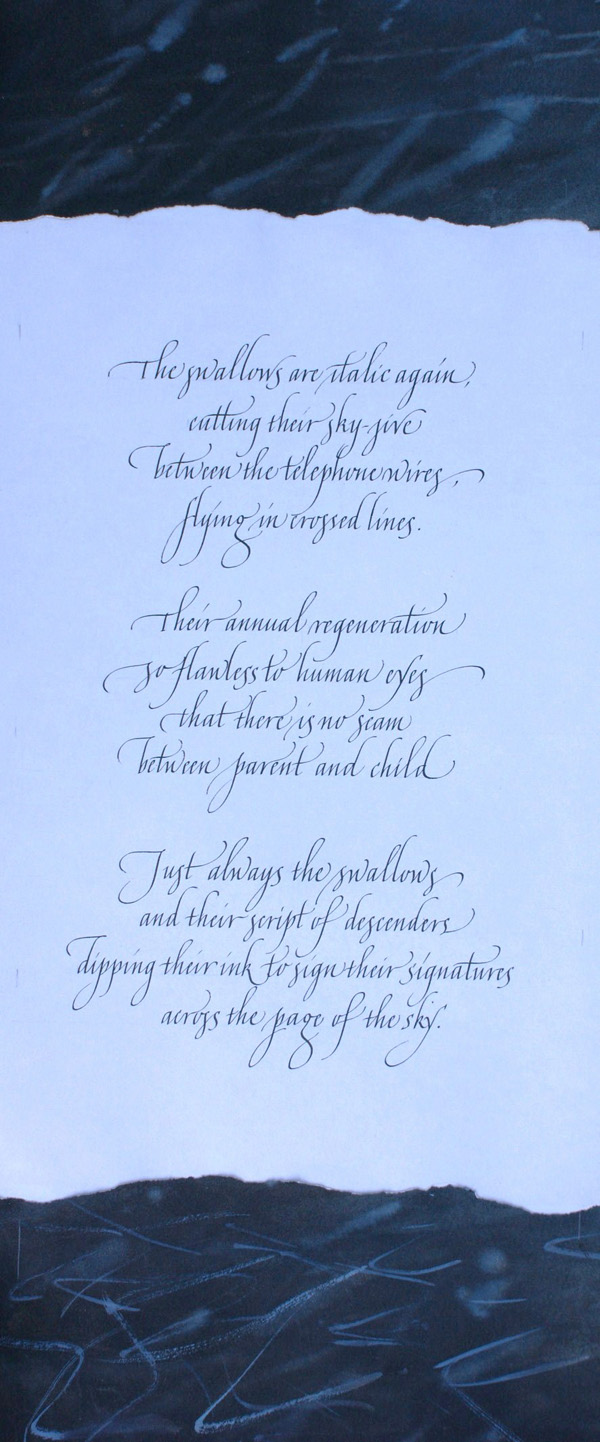 The swallows are italic again,
cutting their sky-jive
between the telephone wires,
flying in crossed lines.
Their annual regeneration
so flawless to human eyes
that there is no seam
between parent and child
Just always the swallows
and their script of descenders
dipping their ink to sign their signatures
across the page of the sky.